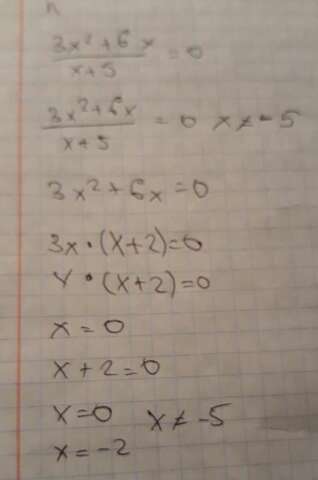 (3x²+6x)/(x+5) = 0
(3x²+6x)/(x+5) = 0 x≠-5
3x²+6x=0
3x·(x+2)=0
x·(x+2)=0
x=0
x+2=0
x=0 x≠-5
x=-2